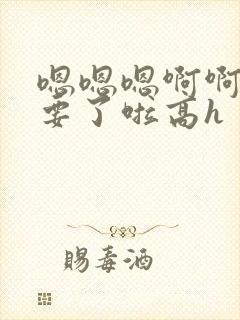 嗯嗯嗯啊啊
要了啦高h
赐毒酒